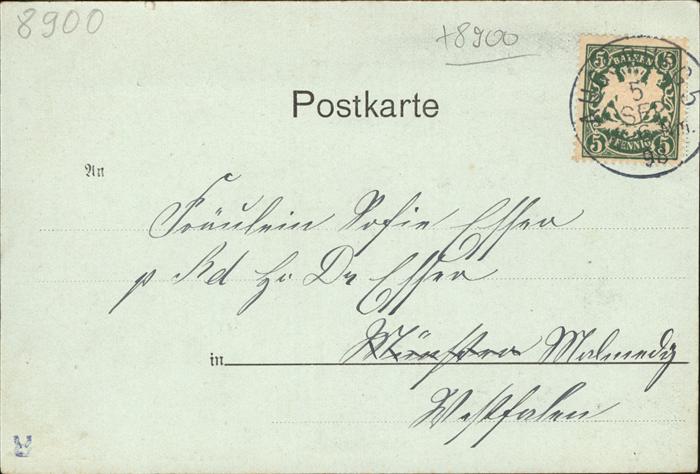 8900
+8900
BAYERN
5 5
AUGSBURG 5
5
SEP
98
5 PFENNIG 5
Postkarte
An
Fräulein Sofie Esser
p Ad Hr Dr Esser
in Münster Malmedy
Westfalen